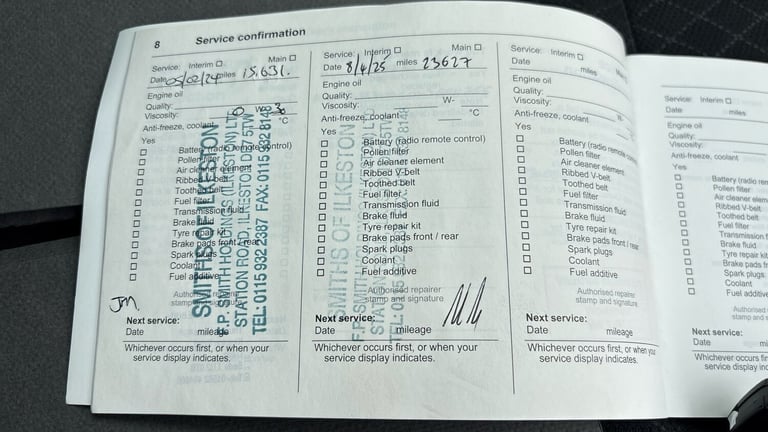 8 Service confirmation
Service: Interim Main
Date 05/02/24 miles 15,631.
Engine oil
Quality:
Viscosity: 0 W- 30
Anti-freeze, coolant °C
Yes
Battery (radio remote control)
Pollen filter
Air cleaner element
Ribbed V-belt
Toothed belt
Fuel filter
Transmission fluid
Brake fluid
Tyre repair kit
Brake pads front / rear
Spark plugs
Coolant
Fuel additive
Authorised repairer
stamp and signature
JM
Next service:
Date mileage
Whichever occurs first, or when your
service display indicates.
SMITHS OF ILKESTON
F.P. SMITH HOLDINGS (ILKESTON) LTD
STATION ROAD, ILKESTON DE7 5TW
TEL: 0115 932 2387 FAX: 0115 932 8148
Service: Interim Main
Date 8/4/25 miles 23627
Engine oil
Quality:
Viscosity: W-
Anti-freeze, coolant °C
Yes
Battery (radio remote control)
Pollen filter
Air cleaner element
Ribbed V-belt
Toothed belt
Fuel filter
Transmission fluid
Brake fluid
Tyre repair kit
Brake pads front / rear
Spark plugs
Coolant
Fuel additive
Authorised repairer
stamp and signature
Next service:
Date mileage
Whichever occurs first, or when your
service display indicates.
SMITHS OF ILKESTON
Service: Interim Main
Date miles
Engine oil
Quality:
Viscosity: W-
Anti-freeze, coolant
Yes
Battery (radio remote
Pollen filter
Air cleaner element
Ribbed V-belt
Toothed belt
Fuel filter
Transmission fluid
Brake fluid
Tyre repair kit
Brake pads front / rear
Spark plugs
Coolant
Fuel additive
Authorised repairer
stamp and signature
Next service:
Date mileage
Whichever occurs first, or when your
service display indicates.
Service: Interim
Date miles
Engine oil
Quality:
Viscosity:
Anti-freeze, coolant
Yes
Battery (radio
Pollen filter
Air cleaner
Ribbed V-belt
Toothed belt
Fuel filter
Transmission
Brake fluid
Tyre repair kit
Brake pads
Spark plugs
Coolant
Fuel additive
Authorised
stamp and
Next service:
Date
Whichever occurs
service display